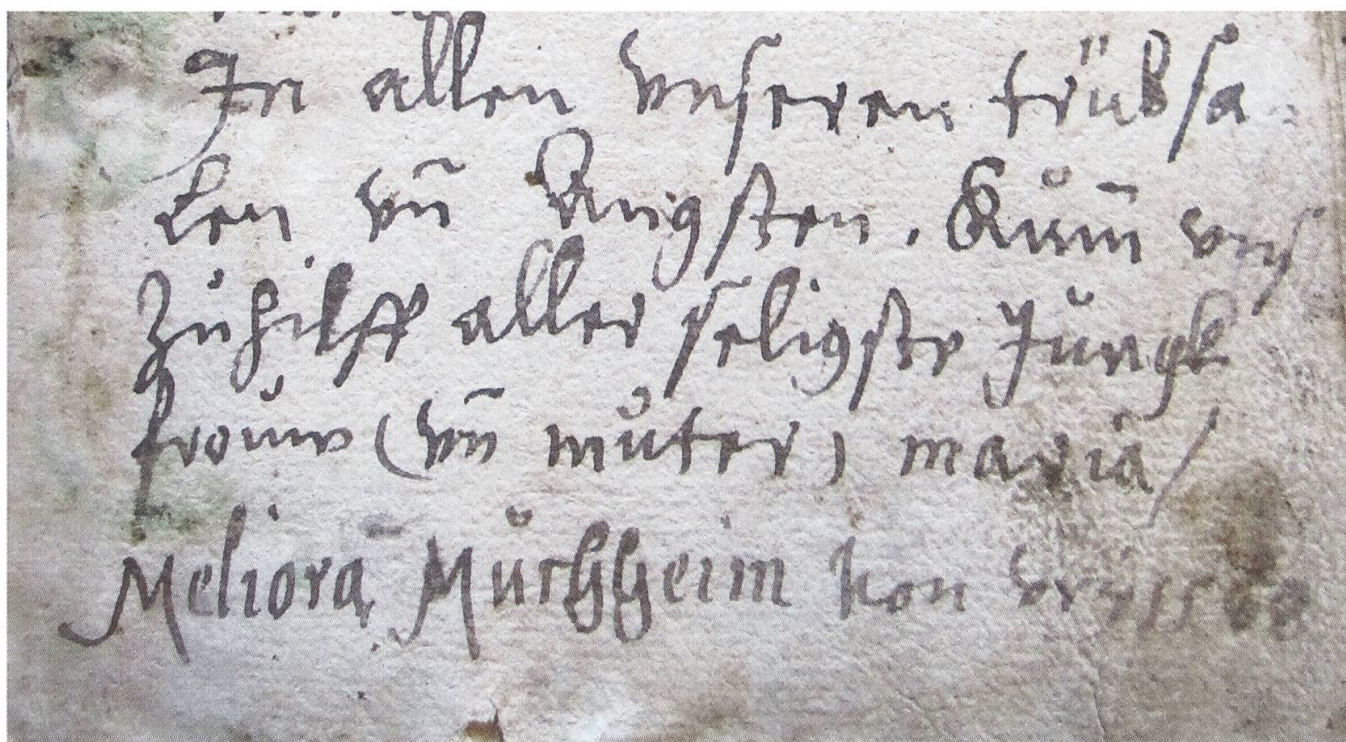 In allen vnseren trübsa
len vn̄ Angsten. Kum̄ vns
Zůhilff aller seligste Jungk
frouw (vn̄ můter) maria /
Meliora Můchheim von vry